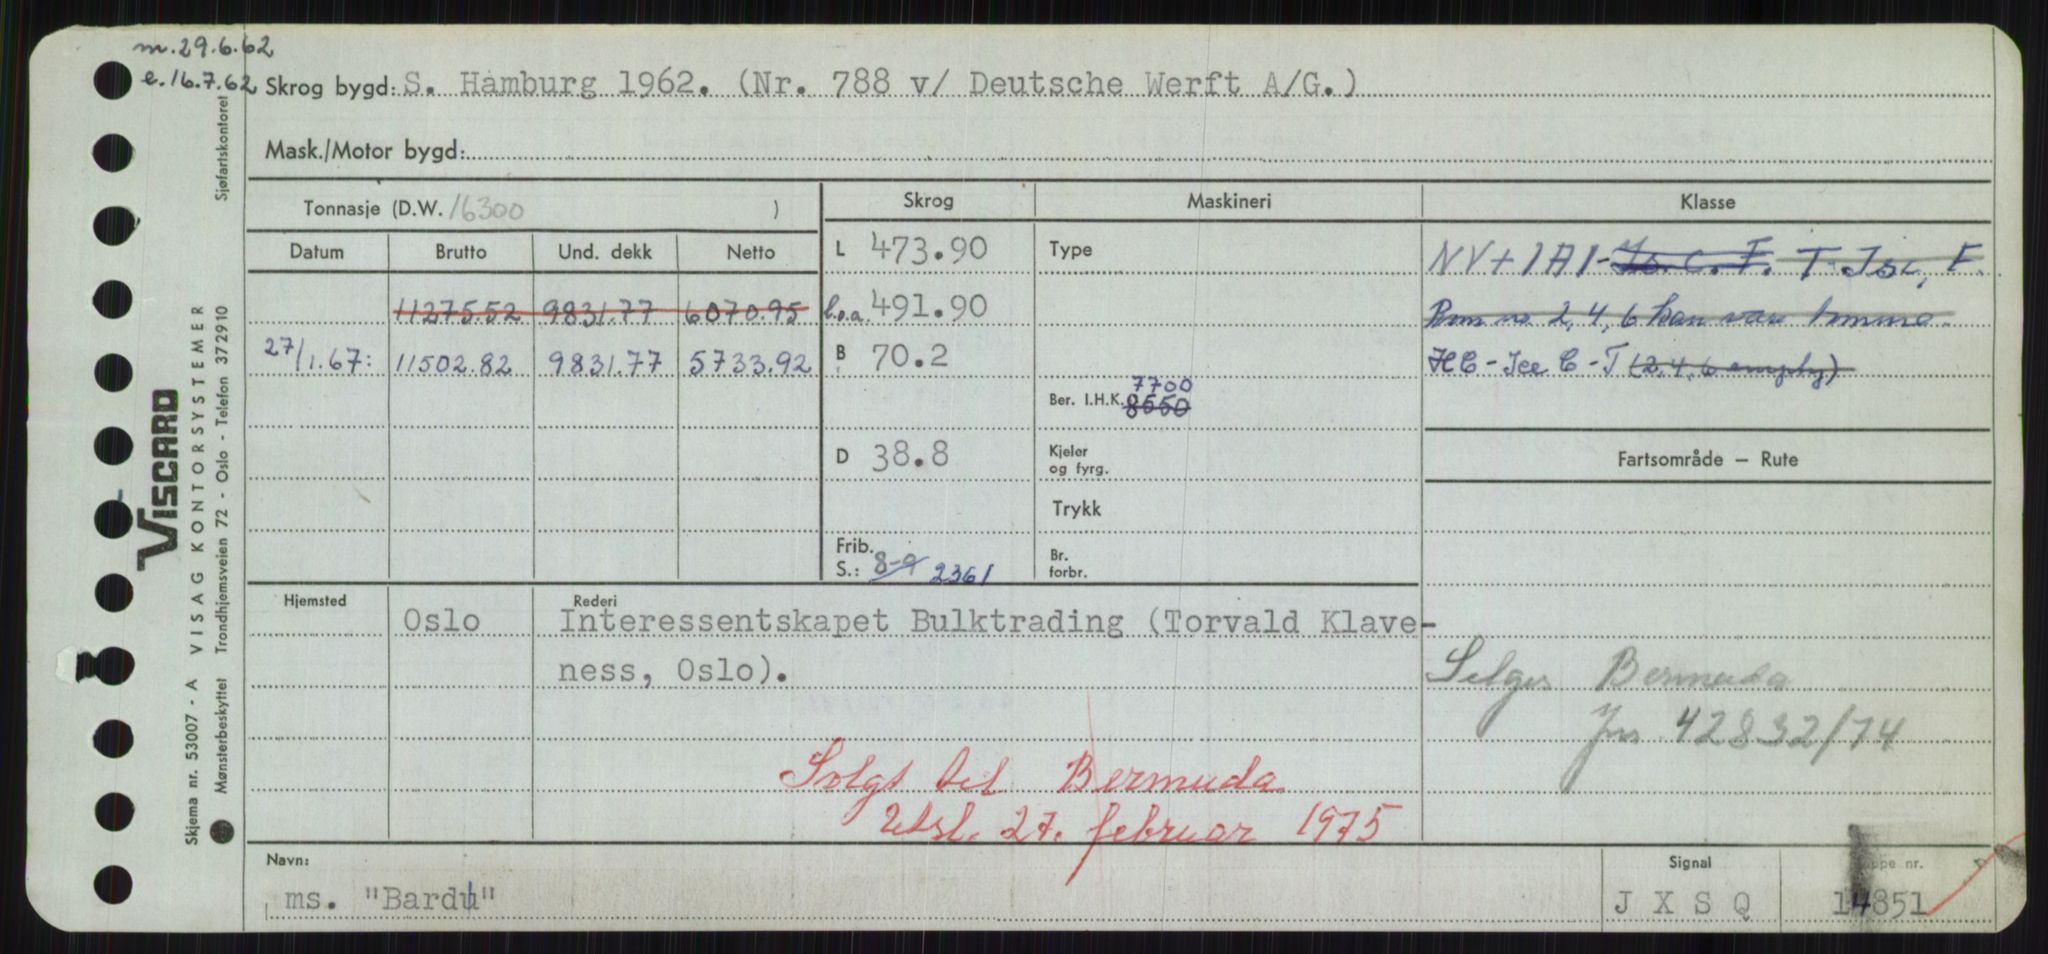 m.29.6.62
e.16.7.62 Skrog bygd: S. Hamburg 1962. (Nr. 788 v/ Deutsche Werft A/G.)
Mask./Motor bygd:
Tonnasje (D.W. 16300 )
Skrog
Maskineri
Klasse
Datum Brutto Und. dekk Netto
L 473.90
Type
NV+1A1-Is.C.F. T-Isc, F.
11275.52 9831.77 6070.95
l.o.a. 491.90
Rom no 2, 4, 6 kan være tomme.
27/1.67: 11502.82 9831.77 5733.92
B 70.2
HC-Ice C-T (2.4.6 empty)
7700
Ber. I.H.K. 8550
D 38.8
Kjeler
og fyrg.
Fartsområde – Rute
Trykk
Frib.
S.: 8-9 2361
Br.
forbr.
Hjemsted
Oslo
Rederi
Interessentskapet Bulktrading (Torvald Klave-
ness, Oslo).
Selges Bermuda
Jnr 42832/74
Solgt til Bermuda
Utsl. 27. februar 1975
Navn:
ms. "Bardu"
Signal
J X S Q
ppe nr.
14851
VISCARD
Skjema nr. 53007 - A VISAG KONTORSYSTEMER
Mønsterbeskyttet Trondhjemsveien 72 - Oslo - Telefon 372910 Sjøfartskontoret